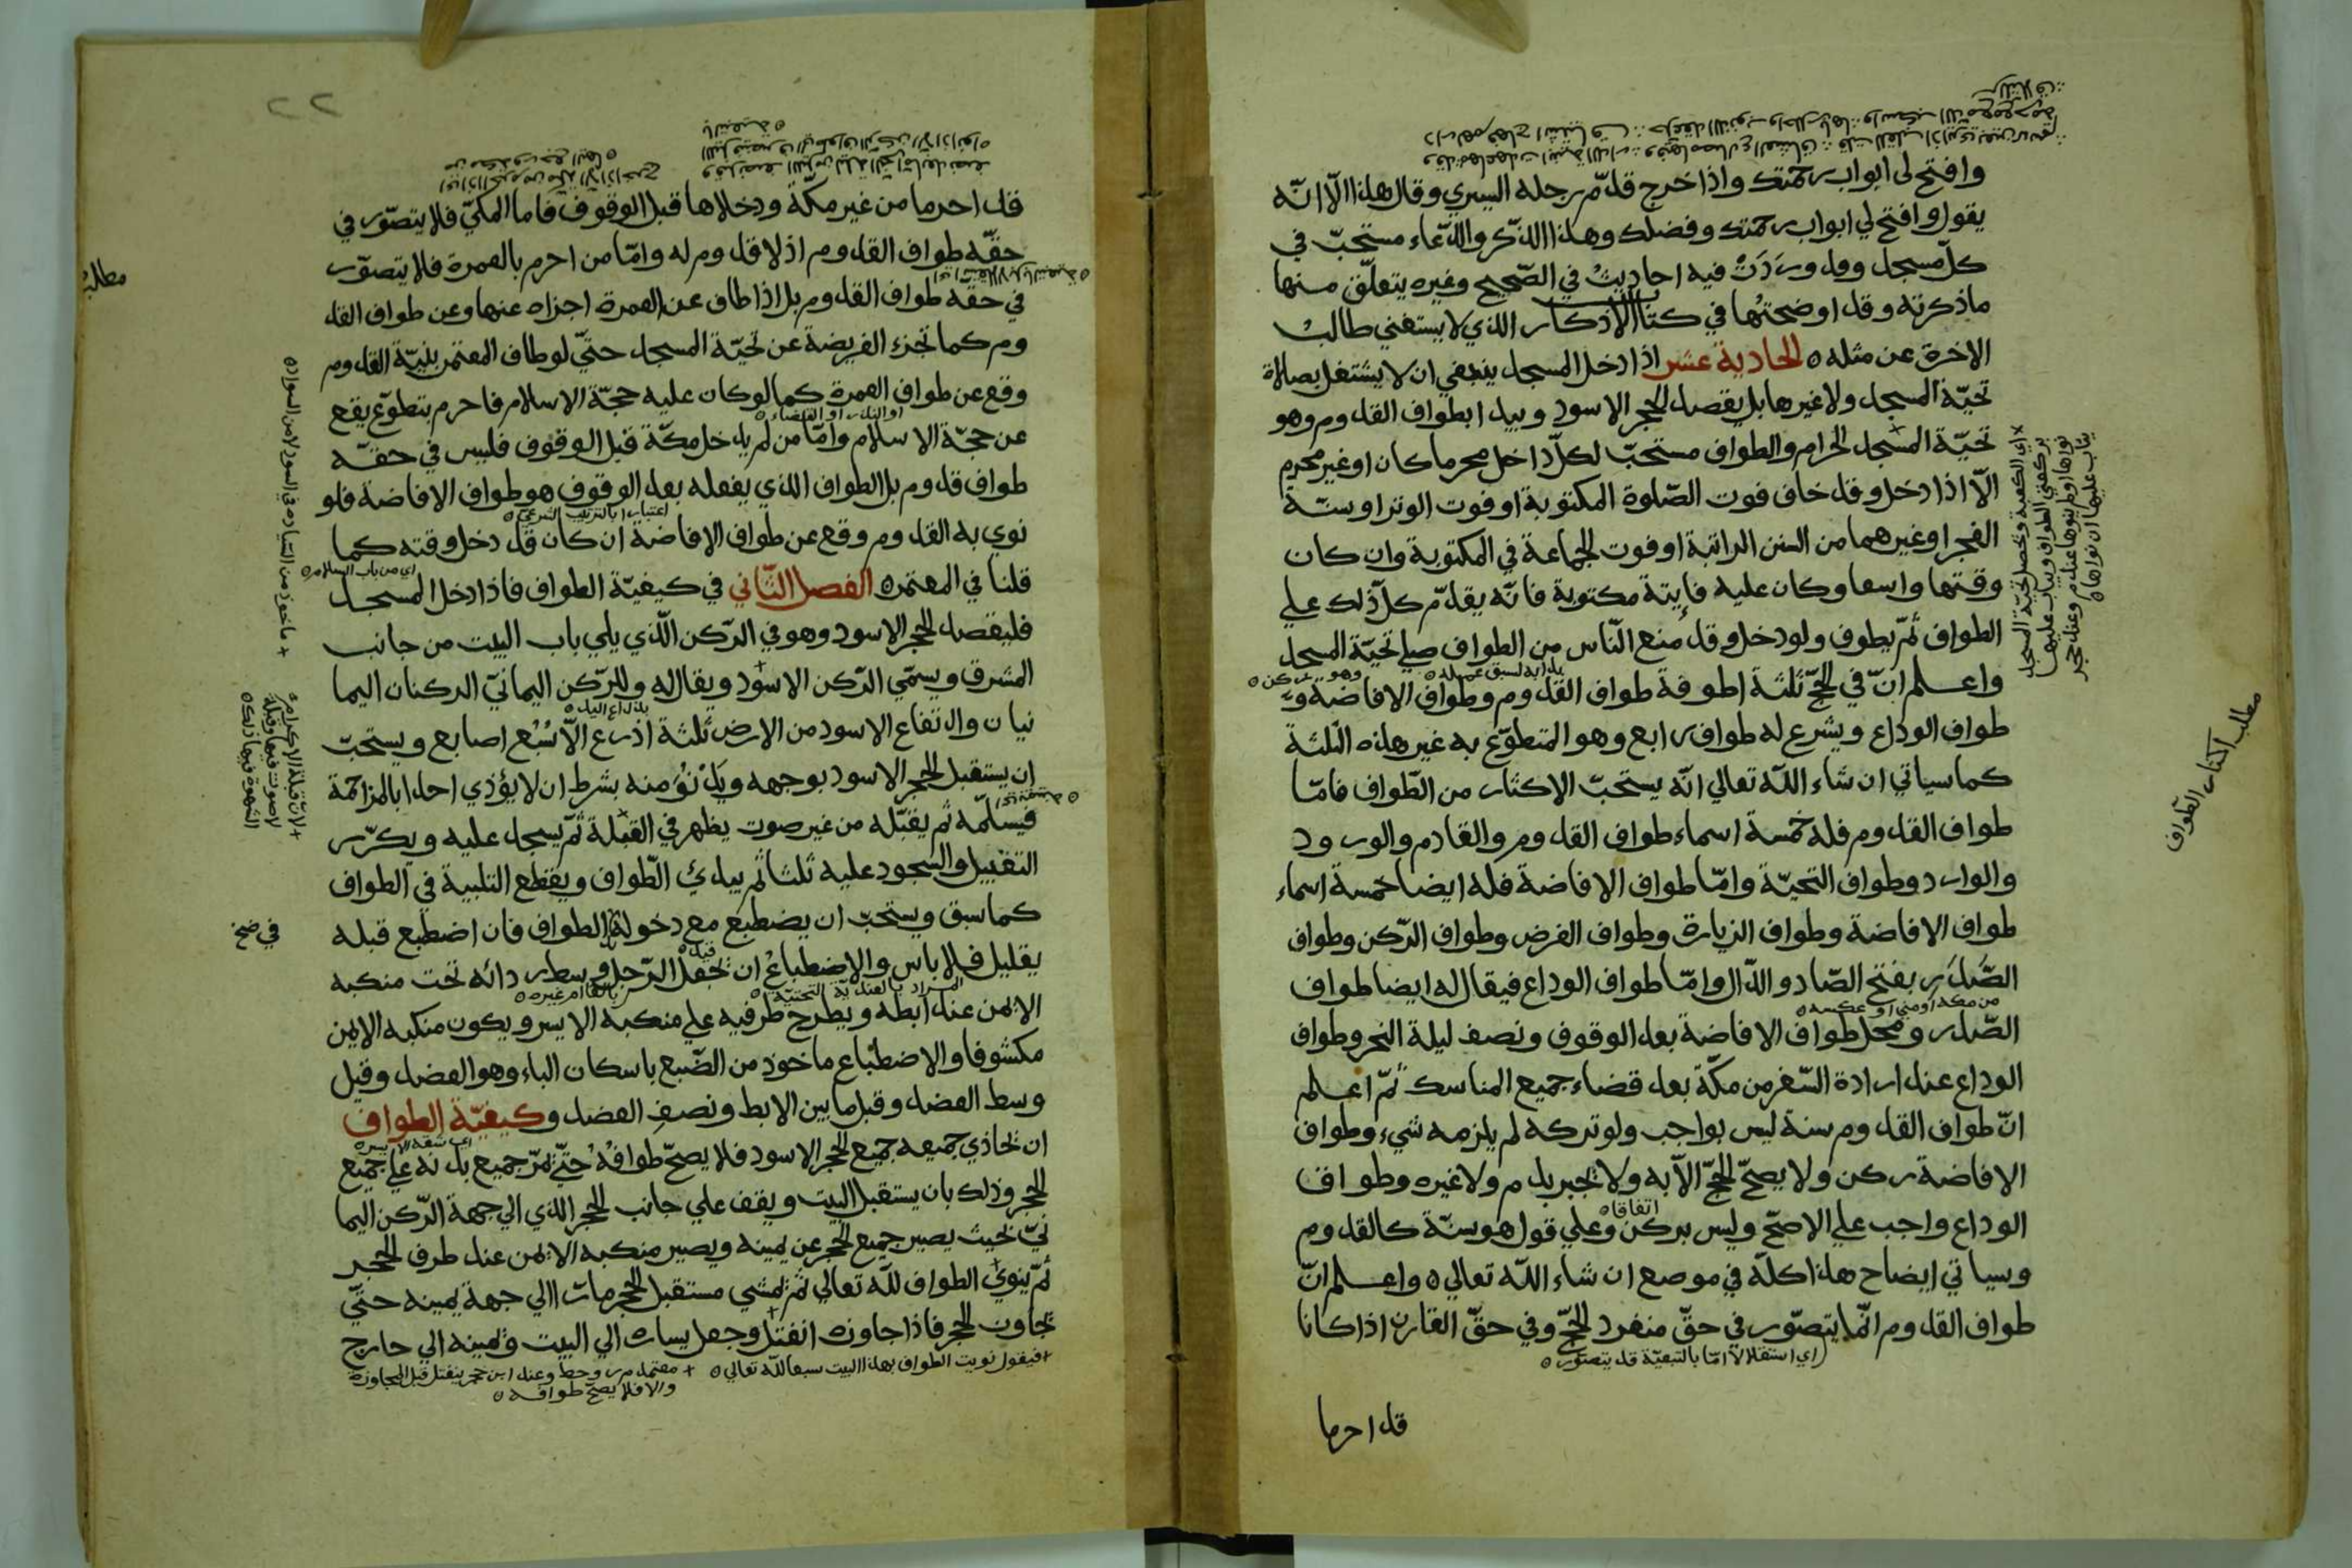 وافتح لي ابواب رحمتك واذا خرج قدّم رجله اليسري وقال هذا الّا انّه
يقول وافتح لي ابواب رحمتك وفضلك وهذا الذّكر والدّعاء مستحبّ في
كلّ مسجد وقد وردت فيه احاديث في الصّحيح وغيره يتعلّق منها
ما ذكرته وقد اوضحتها في كتاب الاذكار الذي لا يستغني طالب
الاخرة عن مثله ه الحادية عشر اذا دخل المسجد ينبغي ان لا يشتغل بصلاة
تحيّة المسجد ولا غيرها بل يقصد الحجر الاسود ويبدا بطواف القدوم وهو
تحيّة المسجد الحرام والطواف مستحبّ لكلّ داخل محرما كان او غير محرم
الّا اذا دخل وقد خاف فوت الصّلوة المكتوبة او فوت الوتر او سنّة
الفجر او غيرهما من السنن الراتبة او فوت الجماعة في المكتوبة وان كان
وقتها واسعا وكان عليه فايتة مكتوبة فانّه يقدّم كلّ ذلك علي
الطواف ثمّ يطوف ولو دخل وقد منع النّاس من الطواف صلي تحيّة المسجد
واعلم انّ في الحجّ ثلثة اطوفة طواف القدوم وطواف الافاضة و
طواف الوداع ويشرع له طواف رابع وهو المتطوّع به غير هذه الثلثة
كما سياتي ان شاء الله تعالي انّه يستحبّ الاكثار من الطّواف فامّا
طواف القدوم فله خمسة اسماء طواف القدوم والقادم والورود
والوارد وطواف التحيّة وامّا طواف الافاضة فله ايضا خمسة اسماء
طواف الافاضة وطواف الزيارة وطواف الفرض وطواف الرّكن وطواف
الصّدر بفتح الصّاد والدّال وامّا طواف الوداع فيقال له ايضا طواف
الصّدر ومحلّ طواف الافاضة بعد الوقوف ونصف ليلة النحر وطواف
الوداع عند ارادة السّفر من مكّة بعد قضاء جميع المناسك ثمّ اعلم
انّ طواف القدوم سنة ليس بواجب ولو تركه لم يلزمه شيء وطواف
الافاضة ركن ولا يصحّ الحجّ الّا به ولا يجبر بدم ولا غيره وطواف
الوداع واجب علي الاصحّ وليس بركن وعلي قول هو سنّة كالقدوم
اتفاقا ه
وسياتي ايضاح هذا كلّه في موضع ان شاء الله تعالي ه واعلم انّ
طواف القدوم انّما يتصوّر في حقّ منفرد الحجّ وفي حقّ القارن اذا كانا
اي استقلالا امّا بالتبعيّة قد يتصوّر ه
قد احرما
مطلب اكثار الطّواف
قد احرما من غير مكّة ودخلاها قبل الوقوف فاما المكيّ فلا يتصوّر في
حقّه طواف القدوم اذ لا قدوم له وامّا من احرم بالعمرة فلا يتصوّر
في حقّه طواف القدوم بل اذا طاف عن العمرة اجزاه عنها وعن طواف القد
وم كما تجزء الفريضة عن تحيّة المسجد حتّي لو طاف المعتمر بنيّة القدوم
وقع عن طواف العمرة كما لو كان عليه حجّة الاسلام فاحرم بتطوّع يقع
او النذر او القضاء ه
عن حجّة الاسلام وامّا من لم يدخل مكّة قبل الوقوف فليس في حقّه
طواف قدوم بل الطواف الذي يفعله بعد الوقوف هو طواف الافاضة فلو
نوي به القدوم وقع عن طواف الافاضة ان كان قد دخل وقته كما
اي من باب السلام ه
قلنا في المعتمر ه الفصل الثّاني في كيفيّة الطواف فاذا دخل المسجد
فليقصد الحجر الاسود وهو في الرّكن الّذي يلي باب البيت من جانب
المشرق ويسمّي الرّكن الاسود ويقال له وللرّكن اليمانيّ الركنان اليما
نيان وارتفاع الاسود من الارض ثلثة اذرع الّا سبع اصابع ويستحبّ
ان يستقبل الحجر الاسود بوجهه ويدنو منه بشرط ان لا يؤذي احدا بالمزاحمة
فيستلمه ثم يقبّله من غير صوت يظهر في القبلة ثمّ يسجد عليه ويكرّر
التقبيل والسجود عليه ثلثا ثم يبدئ الطّواف ويقطع التلبية في الطواف
كما سبق ويستحبّ ان يضطبع مع دخوله الطواف فان اضطبع قبله
في صح
بقليل فلا باس والاضطباع ان يجعل الرّجل وسط ردائه تحت منكبه
الايمن عند ابطه ويطرح طرفيه علي منكبه الايسر ويكون منكبه الايمن
مكشوفا والاضطباع ماخوذ من الضّبع باسكان الباء وهو العضد وقيل
وسط العضد وقيل ما بين الابط ونصف العضد وكيفيّة الطواف
ان يحاذي جميعه جميع الحجر الاسود فلا يصحّ طوافه حتّي يمرّ جميع بدنه علي جميع
الحجر وذلك بان يستقبل البيت ويقف علي جانب الحجر الذي الي جهة الرّكن اليما
نيّ بحيث يصير جميع الحجر عن يمينه ويصير منكبه الايمن عند طرف الحجر
ثمّ ينوي الطواف لله تعالي ثمّ يمشي مستقبل الحجر مارّا الي جهة يمينه حتّي
يجاوز الحجر فاذا جاوزه انفتل وجعل يساره الي البيت ويمينه الي خارج
فيقول نويت الطواف بهذا البيت سبعا لله تعالي ه
معتمد مر وحط وعند ابن حجر ينفتل قبل المجاوزة
والا فلا يصحّ طوافه ه
ماخوذ من السّيادة في السود لا من السواد ه